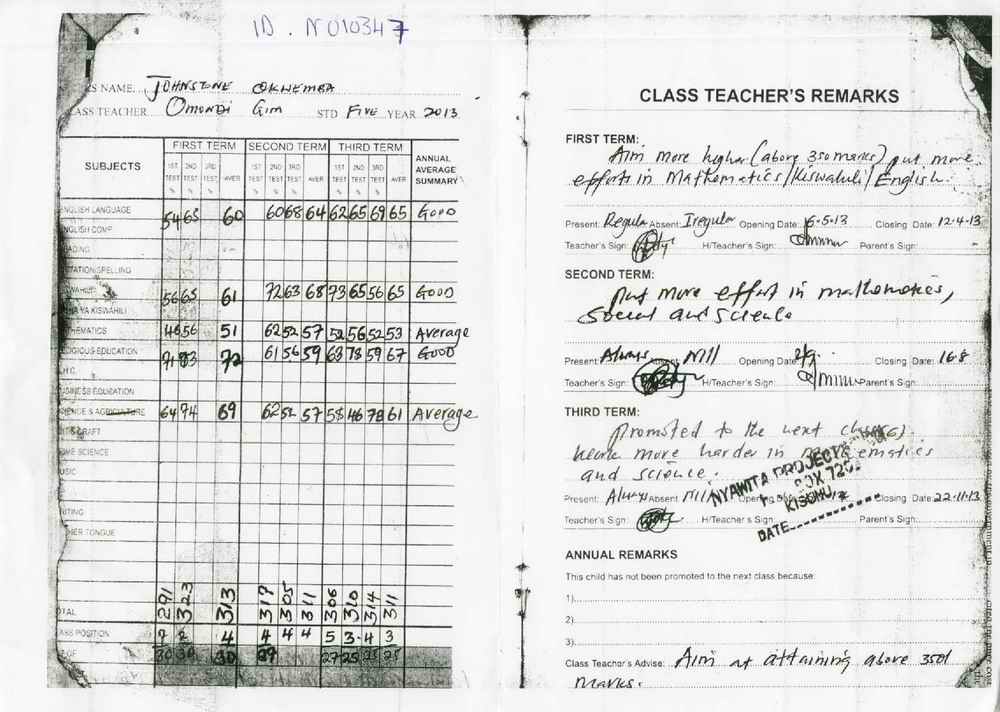 ID. NU10347
NAME. JOHNSTONE OKWEMBA
CLASS TEACHER OMONDI GIM STD FIVE YEAR 2013
SUBJECTS FIRST TERM SECOND TERM THIRD TERM ANNUAL AVERAGE SUMMARY
1ST TEST % 2ND TEST % 3RD TEST % AVER 1ST TEST % 2ND TEST % 3RD TEST % AVER 1ST TEST % 2ND TEST % 3RD TEST % AVER
ENGLISH LANGUAGE 54 65 60 60 68 64 62 65 69 65 GOOD
ENGLISH COMP
READING
DICTATION/SPELLING
KISWAHILI 56 65 61 72 63 68 73 65 56 65 GOOD
YA KISWAHILI
MATHEMATICS 46 56 51 62 52 57 52 56 52 53 Average
RELIGIOUS EDUCATION 72 61 56 59 68 78 59 67 GOOD
BUSINESS EDUCATION
SCIENCE & AGRICULTURE 64 74 69 62 52 57 58 46 78 61 Average
ART & CRAFT
HOME SCIENCE
MUSIC
WRITING
MOTHER TONGUE
TOTAL 291 323 313 317 305 311 306 310 314 311
CLASS POSITION 2 4 4 4 4 5 3 4 3
OUT OF 30 30 30 39 27 25 25 25
CLASS TEACHER'S REMARKS
FIRST TERM:
Aim more higher (above 350 marks) put more
efforts in Mathematics/Kiswahili/English.
Present: Regular Absent: Iregular Opening Date: 6-5-13 Closing Date: 12-4-13
Teacher's Sign: H/Teacher's Sign: Parent's Sign:
SECOND TERM:
Put more effort in mathematics,
Social and science
Present: Always Absent Nill Opening Date 2/9. Closing Date: 16-8
Teacher's Sign: H/Teacher's Sign: Parent's Sign:
THIRD TERM:
Promoted to the next class(6)
work more harder in mathematics
and science.
Present: Always Absent Nill Opening Date Closing Date: 22-11-13
Teacher's Sign: H/Teacher's Sign: Parent's Sign:
NYAWITA PROJECT
BOX 725
KISUMU
DATE
ANNUAL REMARKS
This child has not been promoted to the next class because:
1)
2)
3)
Class Teacher's Advise: Aim at attaining above 350
marks.